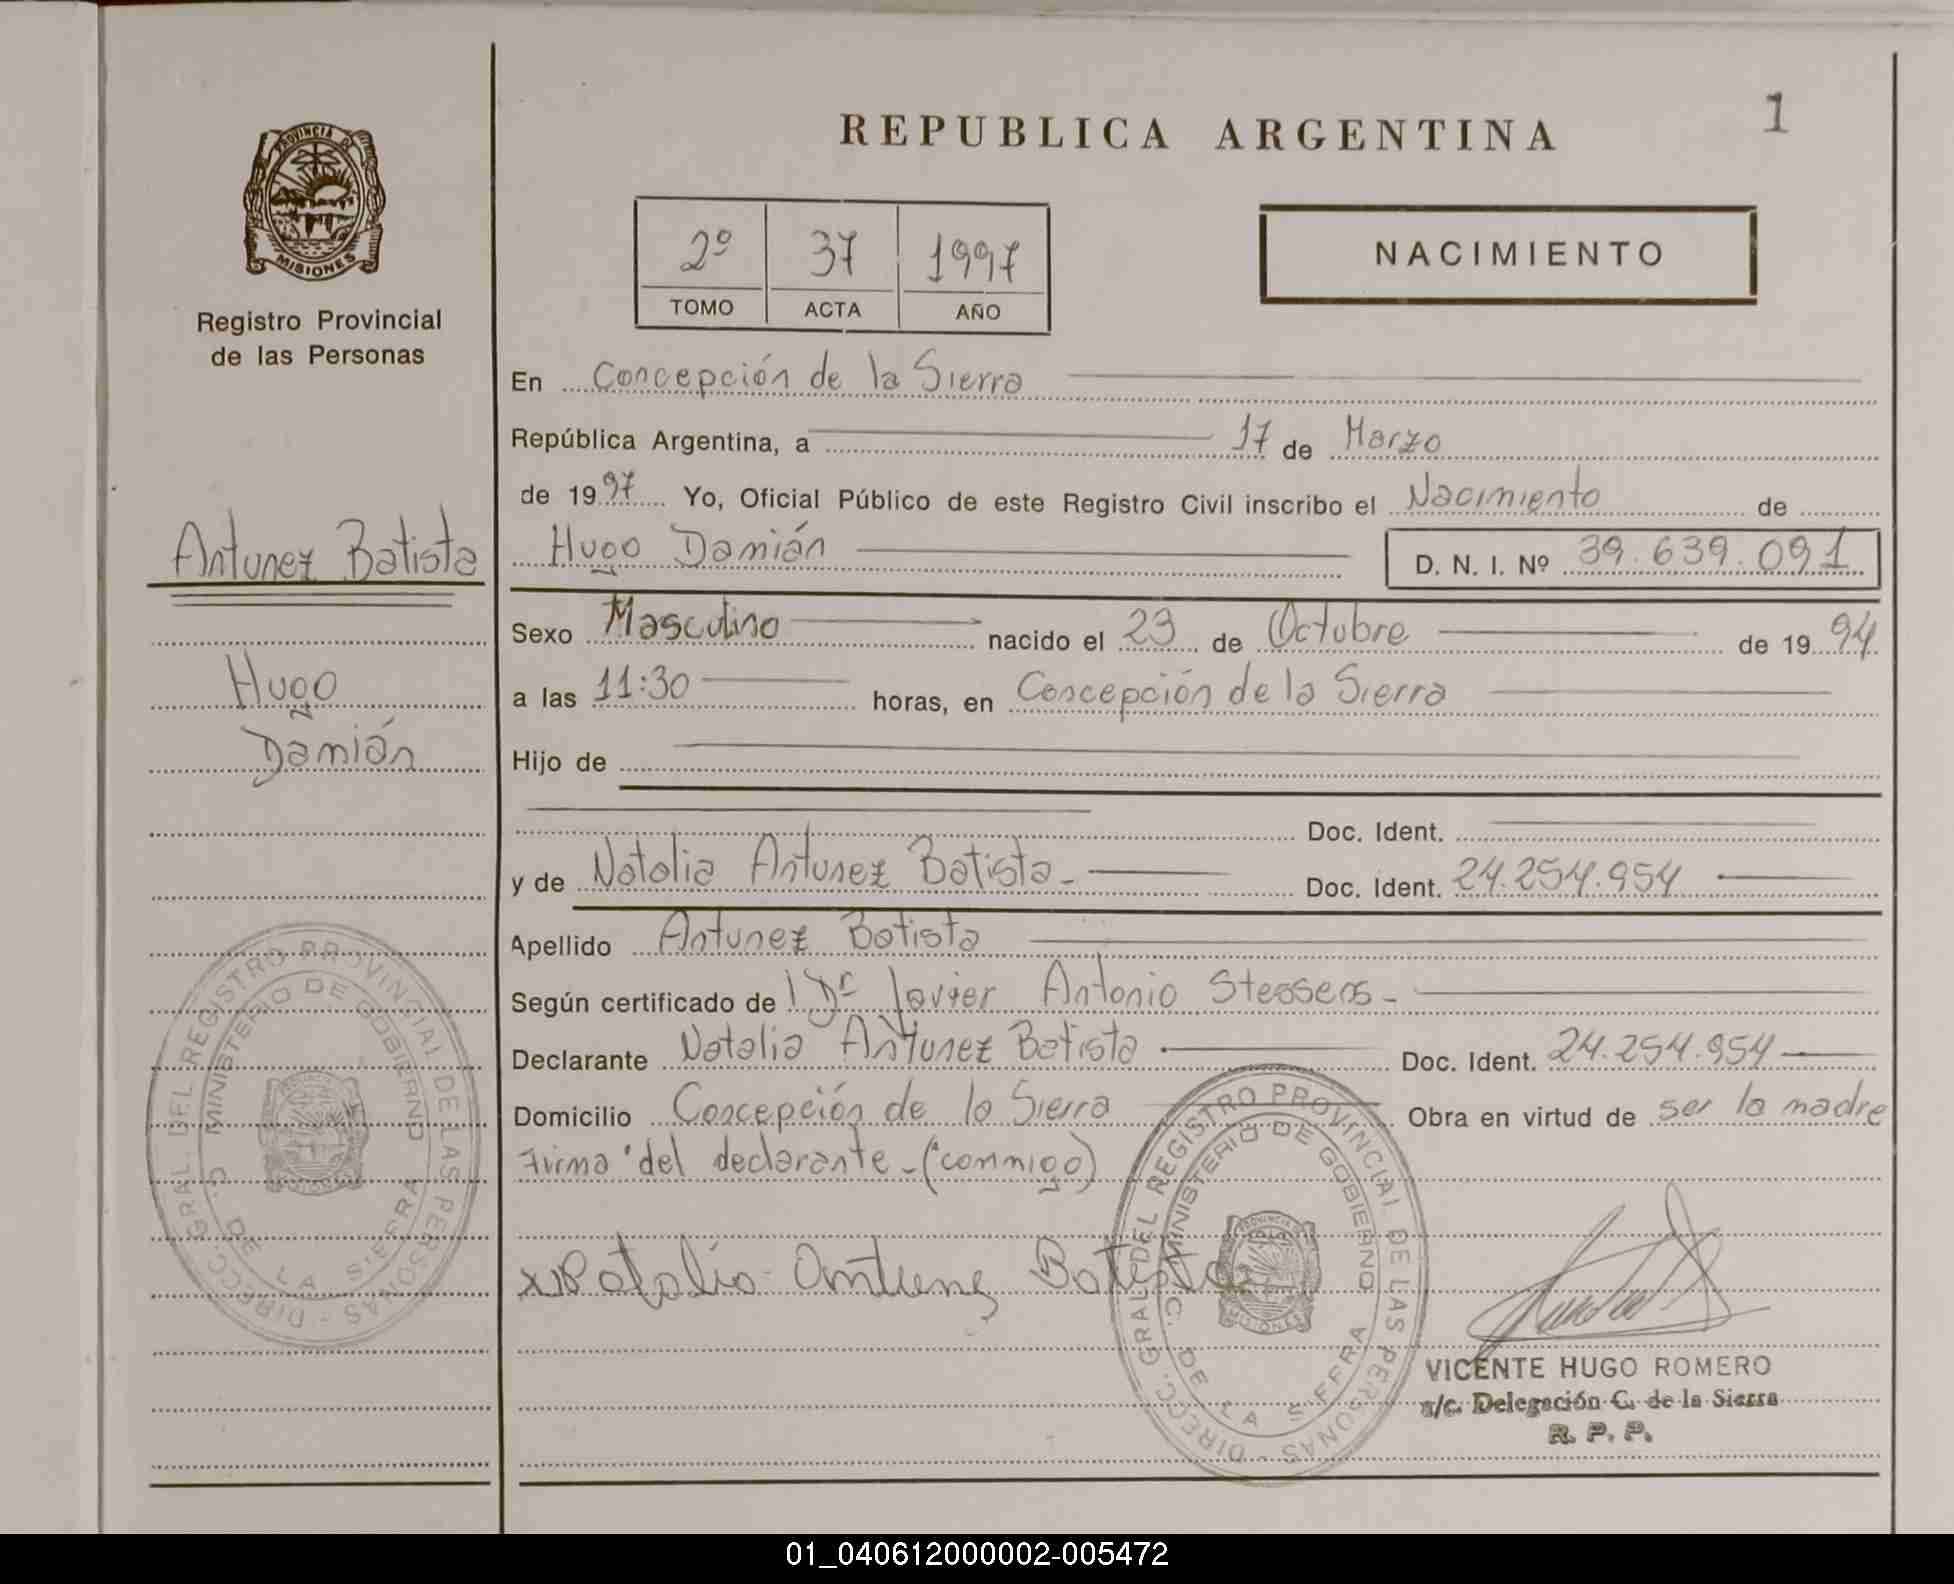 PROVINCIA DE
MISIONES
Registro Provincial
de las Personas
Antunez Batista
Hugo
Damián
REPUBLICA ARGENTINA
1
2º 37 1997
TOMO ACTA AÑO
NACIMIENTO
En Concepción de la Sierra
República Argentina, a 17 de Marzo
de 1997 Yo, Oficial Público de este Registro Civil inscribo el Nacimiento de
Hugo Damián D. N. I. Nº 39.639.091
Sexo Masculino nacido el 23 de Octubre de 1994
a las 11:30 horas, en Concepción de la Sierra
Hijo de
Doc. Ident.
y de Natalia Antunez Batista - Doc. Ident. 24.254.954
Apellido Antunez Batista
Según certificado de Dr Javier Antonio Stessens -
Declarante Natalia Antunez Batista . Doc. Ident. 24.254.954
Domicilio Concepción de la Sierra Obra en virtud de ser la madre
Firma del declarante - (conmigo)
Natalia Antunez Batista
VICENTE HUGO ROMERO
a/c. Delegación C. de la Sierra
R. P. P.
DIRECC. GRAL. DEL REGISTRO PROVINCIAL DE LAS PERSONAS -
MINISTERIO DE GOBIERNO
C. DE LA SIERRA
DIRECC. GRAL. DEL REGISTRO PROVINCIAL DE LAS PERSONAS -
MINISTERIO DE GOBIERNO
C. DE LA SIERRA
PROVINCIA DE
MISIONES
01_040612000002-005472